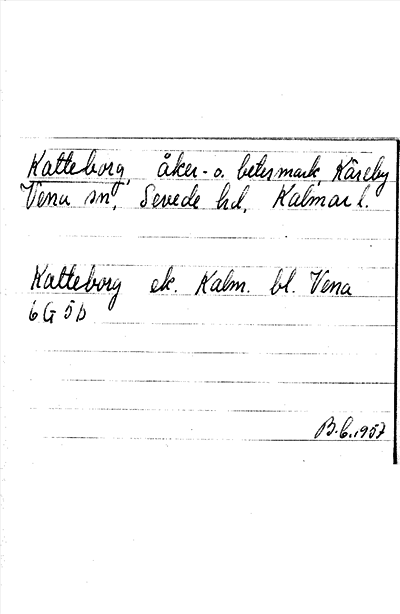 Katteborg, åker- o. betesmark, Kåreby
Vena sn, Sevede hd, Kalmar l.
Katteborg ek. Kalm. bl. Vena
6 G 5 b
B.C. 1957